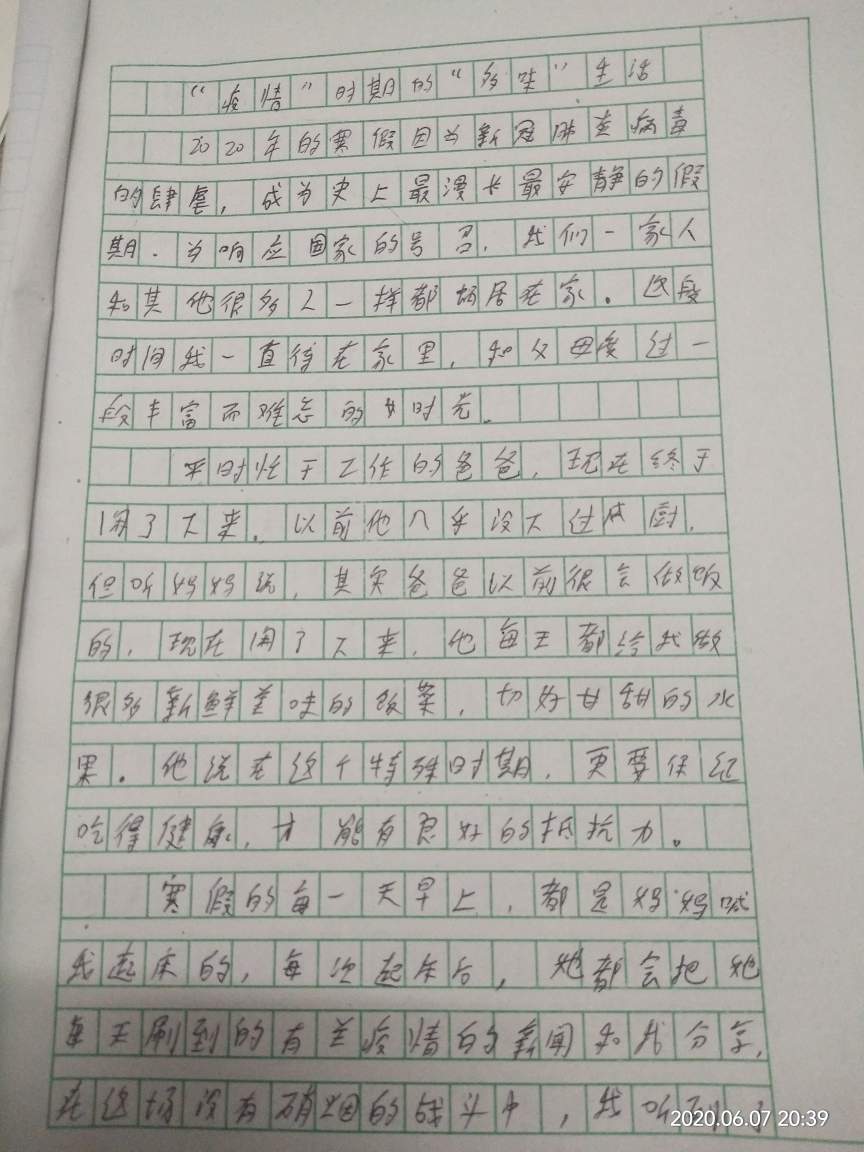 “疫情”时期的“多味”生活
2020年的寒假因为新冠肺炎病毒
的肆虐，成为史上最漫长最安静的假
期．为响应国家的号召，我们一家人
和其他很多人一样都 居在家。这段
时间我一直待在家里，和父母度过一
段丰富而难忘的 时光。
平时忙于工作的爸爸，现在终于
闲了下来。以前他几乎没下过 厨，
但听妈妈说，其实爸爸以前很会做饭
的，现在闲了下来，他每天都给我做
很多新鲜美味的饭菜，切好甘甜的水
果。他说在这个特殊时期，更要保证
吃得健康，才能有良好的抵抗力。
寒假的每一天早上，都是妈妈喊
我起床的，每次起床后，她都会把她
每天刷到的有关疫情的新闻和我分享，
在这场没有硝烟的战斗中，我听到了
2020.06.07 20:39